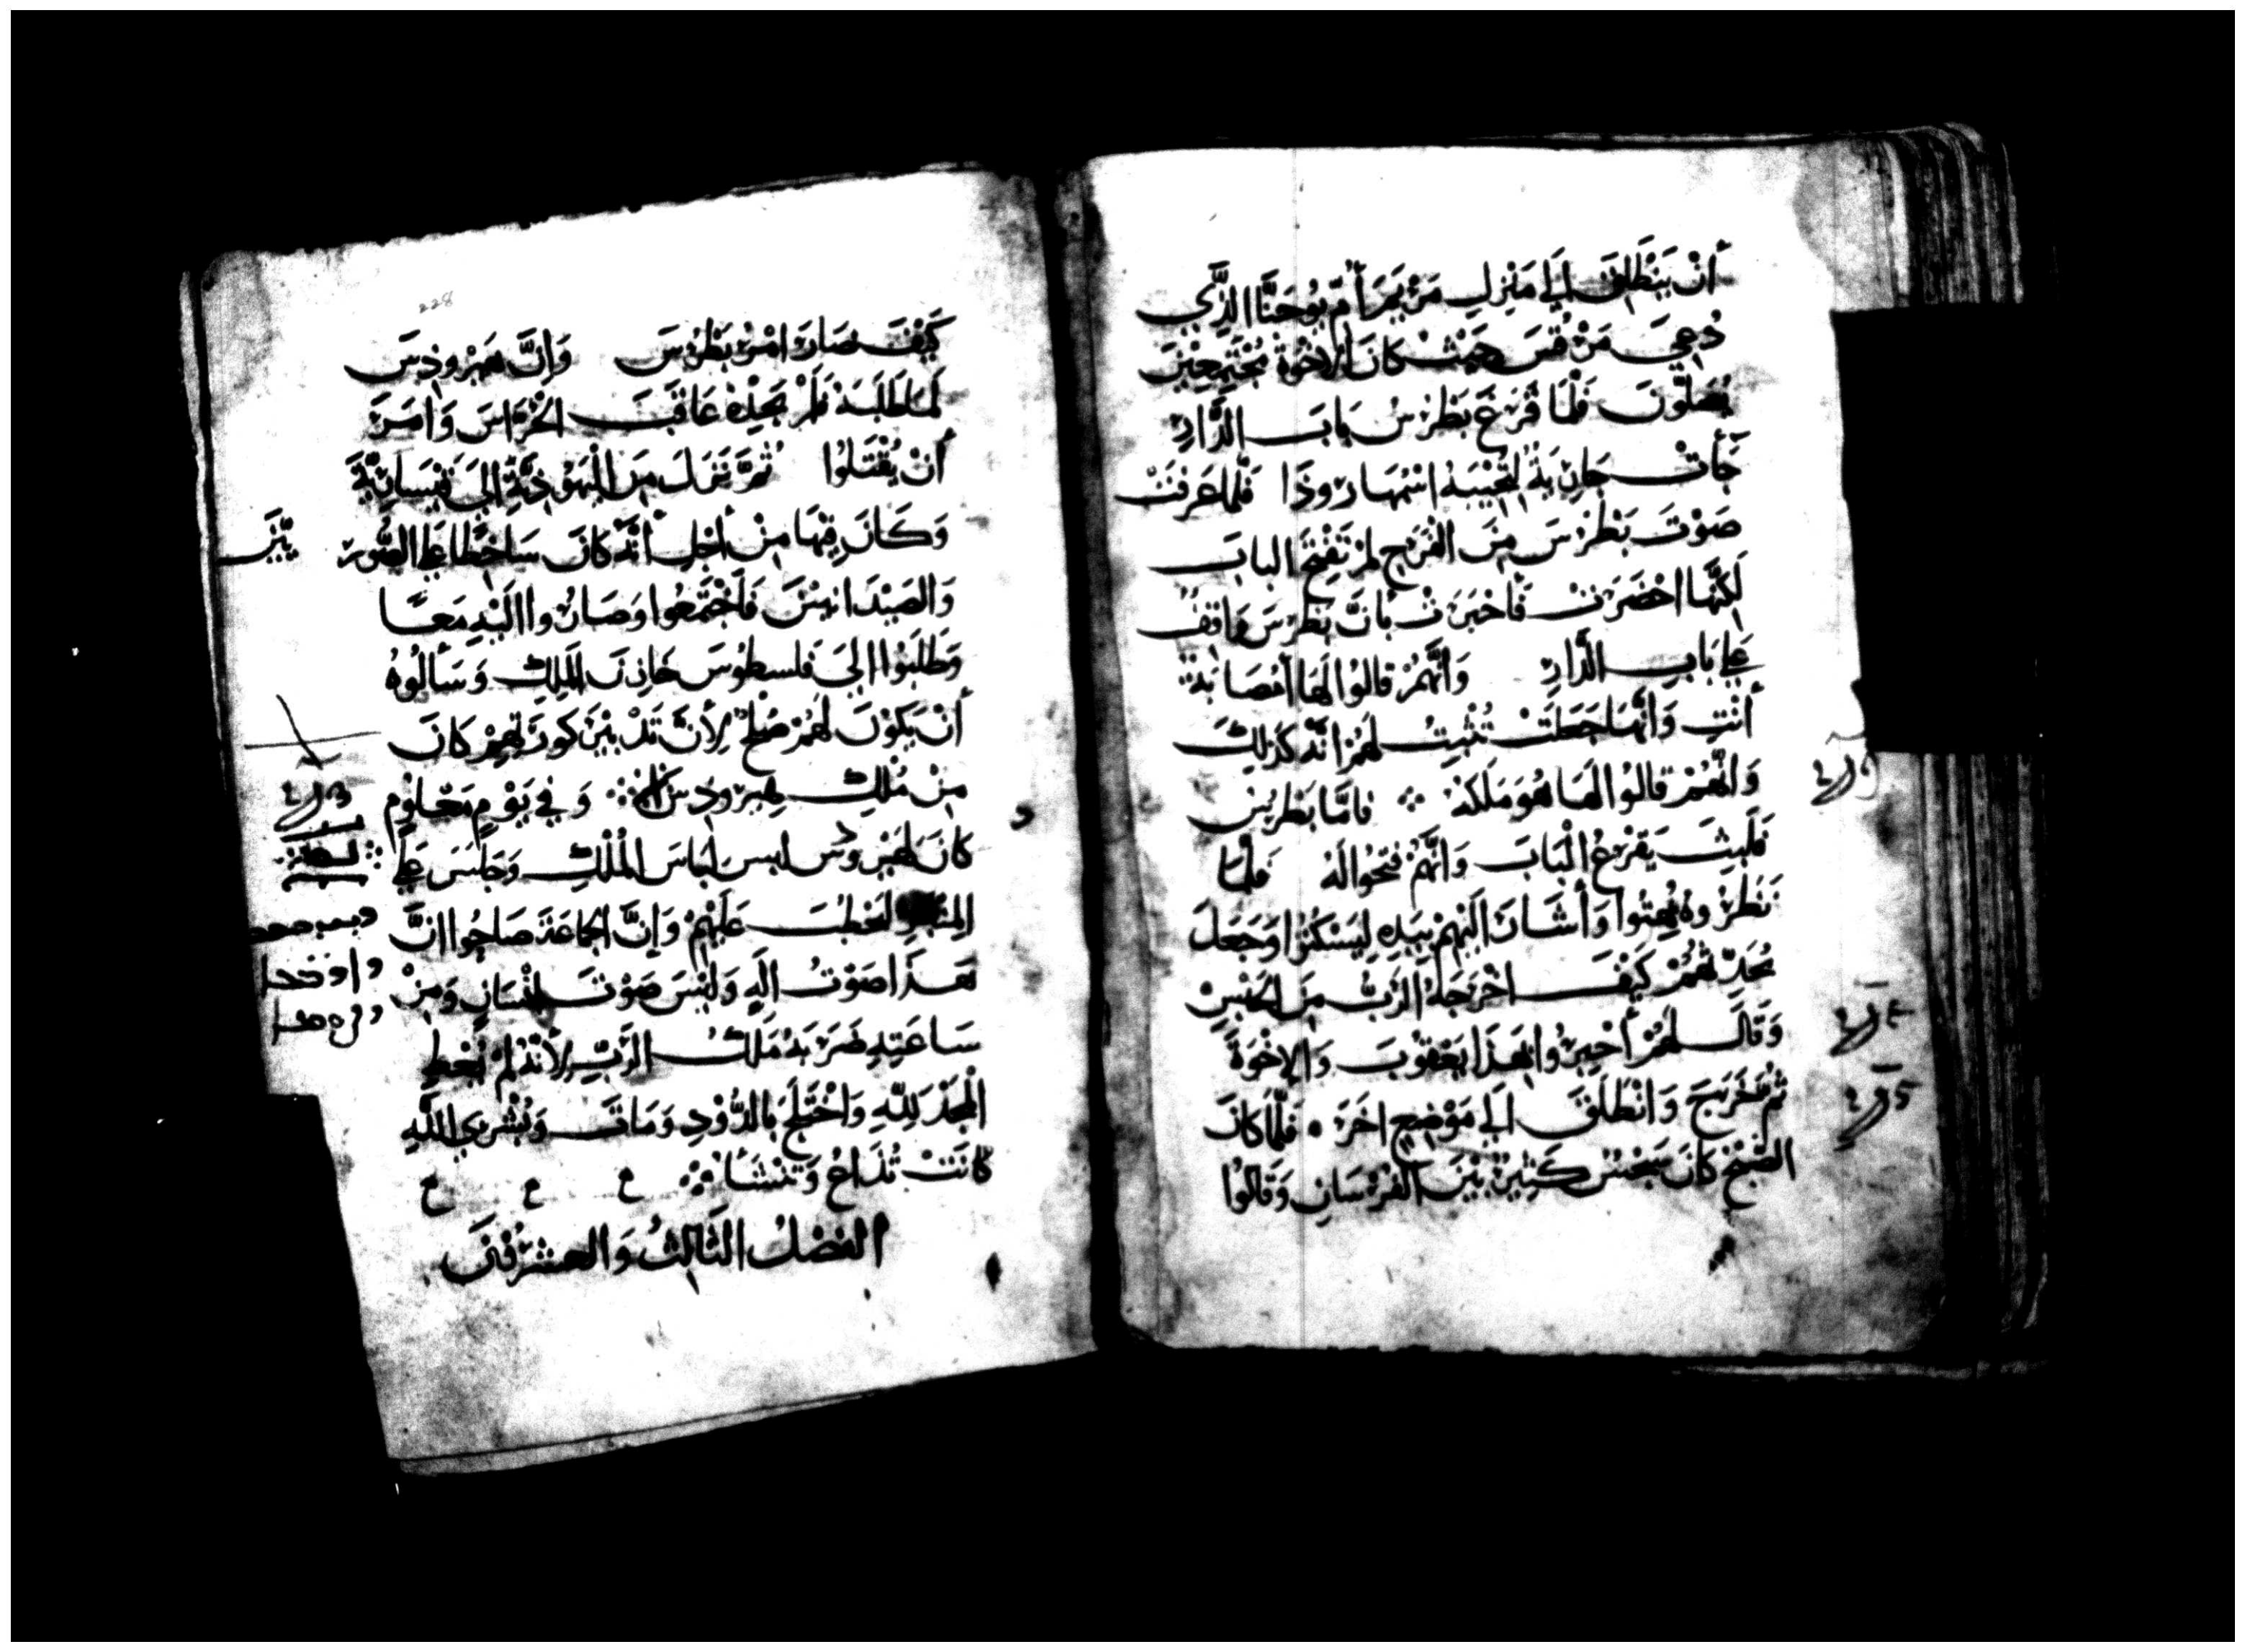 أَنْ يَنْطَلِقَ اِلَى مَنْزِلِ مَرْيَمَ أُمِّ يُوحَنَّا الَّذِي
دُعِيَ مَرْقُسَ حَيْثُ كَانَ الاِخْوَةُ مُجْتَمِعِيْنَ
يُصَلّونَ فَلَمَّا قَرَعَ بَطْرُسُ بَابَ الدَّارِ
جَأَتْ جَارِيَةُ لِتُجِيْبَهُ اسْمُهَا رُوذَا فَلَمَّا عَرَفَتْ
صَوْتَ بَطْرُسَ مِنَ الفَرَحِ لَمْ تَفْتَحِ البابَ
لَكِنَّهَا احْضَرَتْ فَأَخْبَرَتْ بأَنَّ بَطْرُسَ وَاقِفُ
عَلَى بَابِ الدَّارِ وَأَنَّهُمْ قَالُوا لَهَا أَمُصَابَةُ
أَنْتِ وَأَنَّهَا جَعَلَتْ تُثْبِتُ لَهُمْ اَنَّهُ كَذَلِكَ
وَانَّهُمْ قَالُوا لَهَا هُوَ مَلَكَهُ ؞ فَامَّا بَطْرُسُ
فَلَبِثَ يَقْرَعُ الْبَابَ وَانَّهُمْ فَتَحُوا لَهُ فَلَمَّا
نَظَرُوهُ بُهِتُوا وَأَشَارَ الَيْهِمْ بِيَدِهِ لِيَسْكُتُوا وَجَعَلَ
يُحَدِّثُهُمْ كَيْفَ اخْرَجَهُ الرَّبُّ مِنَ الحَبْسِ
وَقَالَ لَهُمْ أَخْبِرُوا بِهَذَا يَعْقُوبَ وَالإِخْوَةَ
ثُمَّ خَرَجَ وَانْطَلَقَ اِلَى مَوْضِعٍ اخَرَ • فَلَمَّا كَانَ
الصُّبْحُ كَانَ سَجْسُ كَثِيْرُ بَيْنَ الفُرْسَانِ وَقَالُوا
228
كَيْفَ صَارَ امْرُ بَطْرُسَ وَانَّ هِيْرُودِسَ
لَمَّا طَلَبَهُ فَلَمْ يَجِدْهُ عَاقَبَ الْحُرَّاسَ وَامَرَ
أَنْ يُقْتَلُوا ثُمَّ نَزَلَ مِنَ الْيَهُوذِيَّةِ اِلَى قَيْسَارِيَّةَ
وَكَانَ فِيْهَا مِنْ أَجْلِ أَنَّهُ كَانَ سَاخِطًا عَلَى الصُّور يّيْنَ
وَالصَيْدَانِيّيْنَ فَاَجْتَمَعُوا وَصَارُوا اِلَيْهِ مَعًا
وَطَلَبُوا اِلَى فَلسطُوسَ خَازِنَ المَلِكِ وَسَأَلُوهُ
أَنْ يَكُوْنَ لَهُمْ صُلْحُ لأَنَّ تَدْبِيْرَ كُورَتِهِمْ كَانَ
مِنْ مُلْكِ هِيْرُودِسَ ؞ وَفِي يَوْمٍ مَعْلُومٍ
كَانَ هِيْرُودُس لبس لِبَاسَ الْمُلْكِ وَجَلَسَ عَلَى
المِنْبَرِ لِيَخْطُبَ عَلَيْهِمْ وَإِنَّ الجَمَاعَةَ صَاحُوا انَّ
هَذَا صَوْتُ اِلَهٍ وَلَيْسَ صَوْتَ اِنْسَانٍ وَمِنْ
سَاعَتِهِ ضَرَبَهُ مَلَكُ الرَّبِّ لأَنَّهُ لَمْ يُعْطِ
الْمَجْدَ لِلّهِ وَاخْتَلَجَ بِالدُّوْدِ وَمَاتَ وَبُشْرَى اللّهِ
كَانَتْ تُذَاعُ وَتَنْشَأُ ؞ ع ع ع
الفَصْلُ الثَالِثُ وَالعِشْرُوْنَ